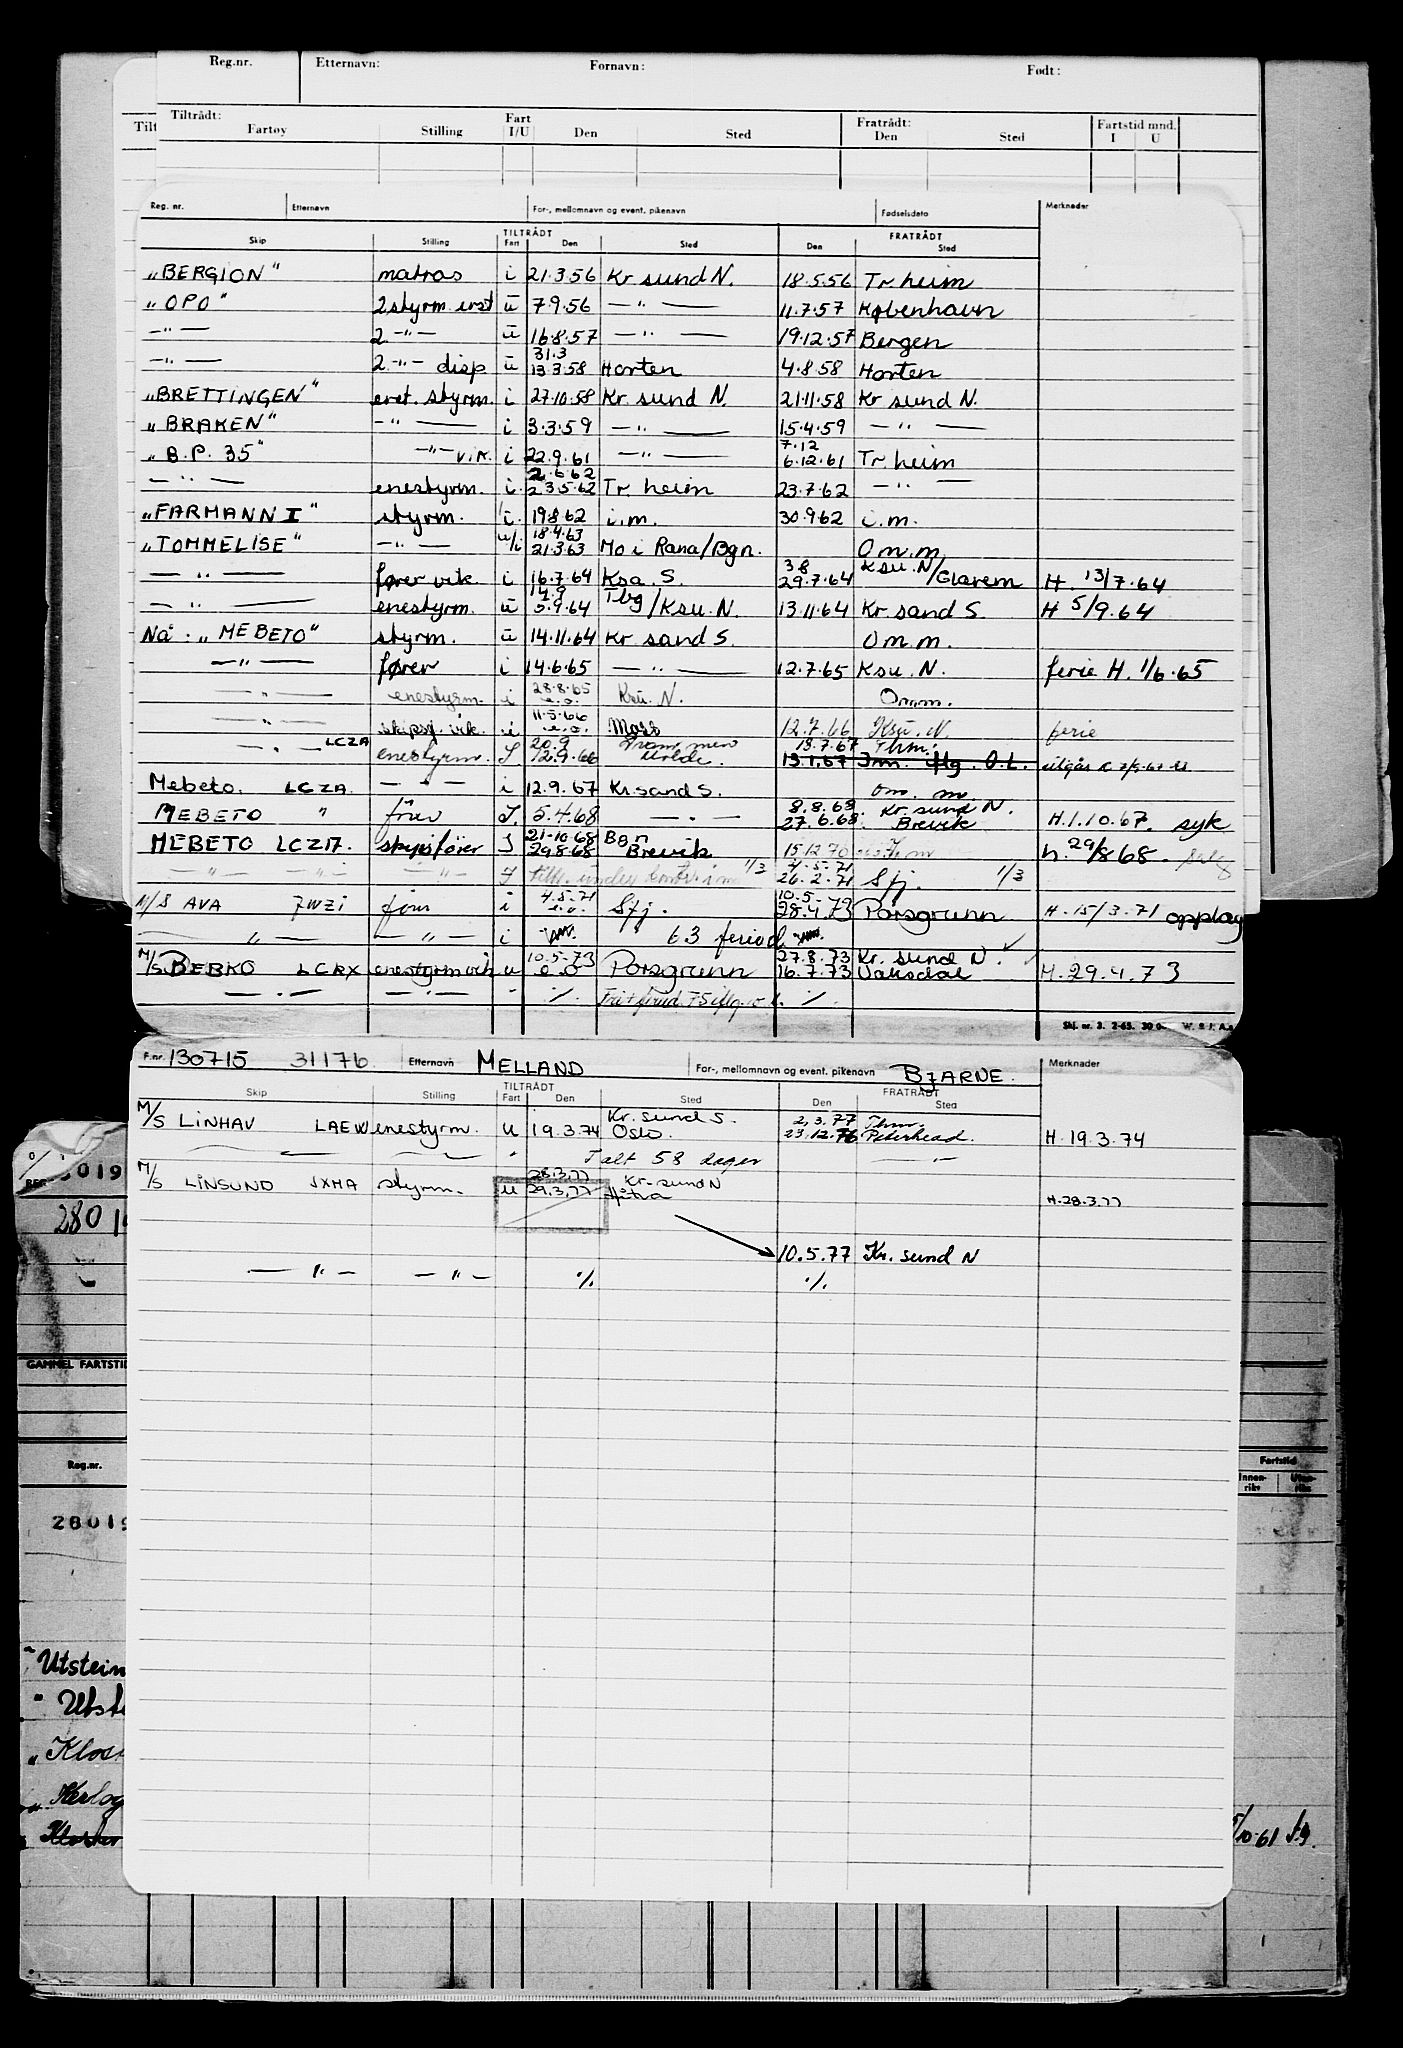 Reg.nr. Etternavn: Fornavn: Født:
Tiltrådt: Fart Fratrådt: Fartstid mnd.
Fartøy Stilling I/U Den Sted Den Sted I U
Reg. nr. Etternavn For-, mellomnavn og event. pikenavn Fødselsdato Merknader
TILTRÅDT FRATRÅDT
Skip Stilling Fart Den Sted Den Sted
"BERGION" matros i 21.3.56 Kr sund N. 18.5.56 Tr heim
"OPO" 2 styrm. erst ū 7.9.56 —"— 11.7.57 København
—"— 2. —"— ū 16.8.57 —"— 19.12.57 Bergen
31.3
—"— 2 —"— disp ū 13.3.58 Horten 4.8.58 Horten
"BRETTINGEN" enst. styrm. i 27.10.58 Kr sund N. 21.11.58 Kr sund N.
"BRAKEN" —"— i 3.3.59 —"— 15.4.59 —"—
7.12
"B.P. 35" —"— vik. i 22.9.61 —"— 6.12.61 Tr heim
2.6.62
—"— enestyrm. i. 23.5.62 Tr. heim 23.7.62 —"—
"FARMANN I" styrm. i. 19.8.62 i.m. 30.9.62 i.m.
18.4.63
"TOMMELISE" —"— u/i 21.3.63 Mo i Rana/Bgn. Om.m.
3.8 Ksu. N/
—"— fører vik. i 16.7.64 Ksa. S. 29.7.64 Glarem H. 13/7.64
14.9
—"— enestyrm. ū 5.9.64 Tbg/Ksu. N. 13.11.64 Kr. sand S. H 5/9.64
Nå: "MEBETO" styrm. ū 14.11.64 Kr sand S. Om m.
—"— fører i 14.6.65 —"— 12.7.65 Ksu. N. ferie H. 1/6.65
28.8.65
—"— enestyrm. i e.o. Ksu. N. Om.m.
11.5.66
—"— skipsf. vik. i e.o. Moss 12.7.66 Ksu. N. ferie
20.9 13.7.67 Thm.
—"— LCZA enestyrm. I 12.9.66 Molde. 13.1.67
Mebeto. LCZA. —"— i 12.9.67 Kr.sand S. om. m
8.8.68 Kr. sund N.
MEBETO " fører I. 5.4.68 —"— 27.6.68. Brevik H.1.10.67. syk
21.10.68 Bgn
MEBETO LCZA. skipsfører I 29.8.68 Brevik 15.12.70 h. 29/8 68.
—"— —"— I 1/3 26.2.71 Sfj. 1/3
4.5.71 10.5-
M/S AVA JWZI fører i e.o. Sfj. 28.4.73 Porsgrunn H. 15/3.71 opplag
—"— —"— i 63
10.5-73 27.8.73 Kr. sund N.
M/S BEBKO LCRX enestyrm vik u e o Porsgrunn 16.7.73 Vaksdal H. 29.4.73
—"— —"— " ./. ./.
Skj. nr. 3. 2-65.
F.nr. 130715 31176 Etternavn MELLAND For-, mellomnavn og event. pikenavn BJARNE. Merknader
TILTRÅDT FRATRÅDT
Skip Stilling Fart Den Sted Den Sted
Kr. sund S. 2.3.77 Thm.
M/S LINHAV LAEW enestyrm. u 19.3.74 Oslo. 23.12.76 Peterhead. H. 19.3.74
I alt 58 dager —"—
28.3.77 Kr. sund N
M/S LINSUND JXMA styrm. u 29.3.77 Hitra H. 28.3.77
10.5.77 Kr. sund N
—"— —"— ./. ./.
GAMMEL FARTSTID
Reg.nr. Fartstid
Innen-riks Uten-riks
28019
"Utstein
" Utst
"Klos